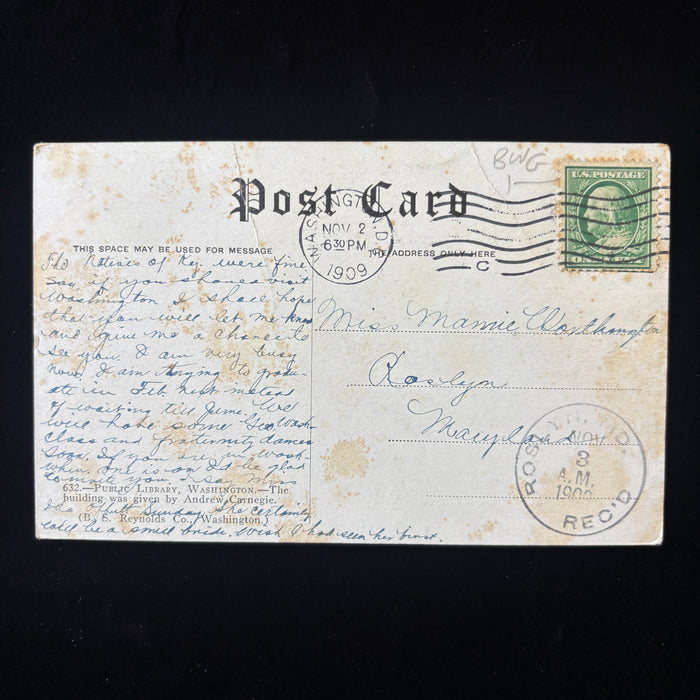 BWG
1—
U.S. POSTAGE
ONE CENT
Post Card
WASHINGTON, D.C.
NOV 2
6 30 PM
1909
C
THIS SPACE MAY BE USED FOR MESSAGE
THE ADDRESS ONLY HERE
The Notices of Key. were fine
Say, if you chance visit
Washington I shall hope
that you will let me know
and give me a chance to
see you. I am very busy
now. I am trying to gradu-
ate in Feb. next instead
of waiting till June. We
will have some Geo Wash
class and fraternity dances
soon. If you are in Wash
when one is on I'd be glad
to invite you. I saw Miss
632.—PUBLIC LIBRARY, WASHINGTON.—The
building was given by Andrew Carnegie.
Ida Offutt Sunday. She certainly
(B. S. Reynolds Co., Washington.)
will be a small bride. Wish I had seen her
Miss Mamie Worthington
Roslyn
Maryland
ROSLYN, MD.
NOV
3
A.M.
1909
REC'D